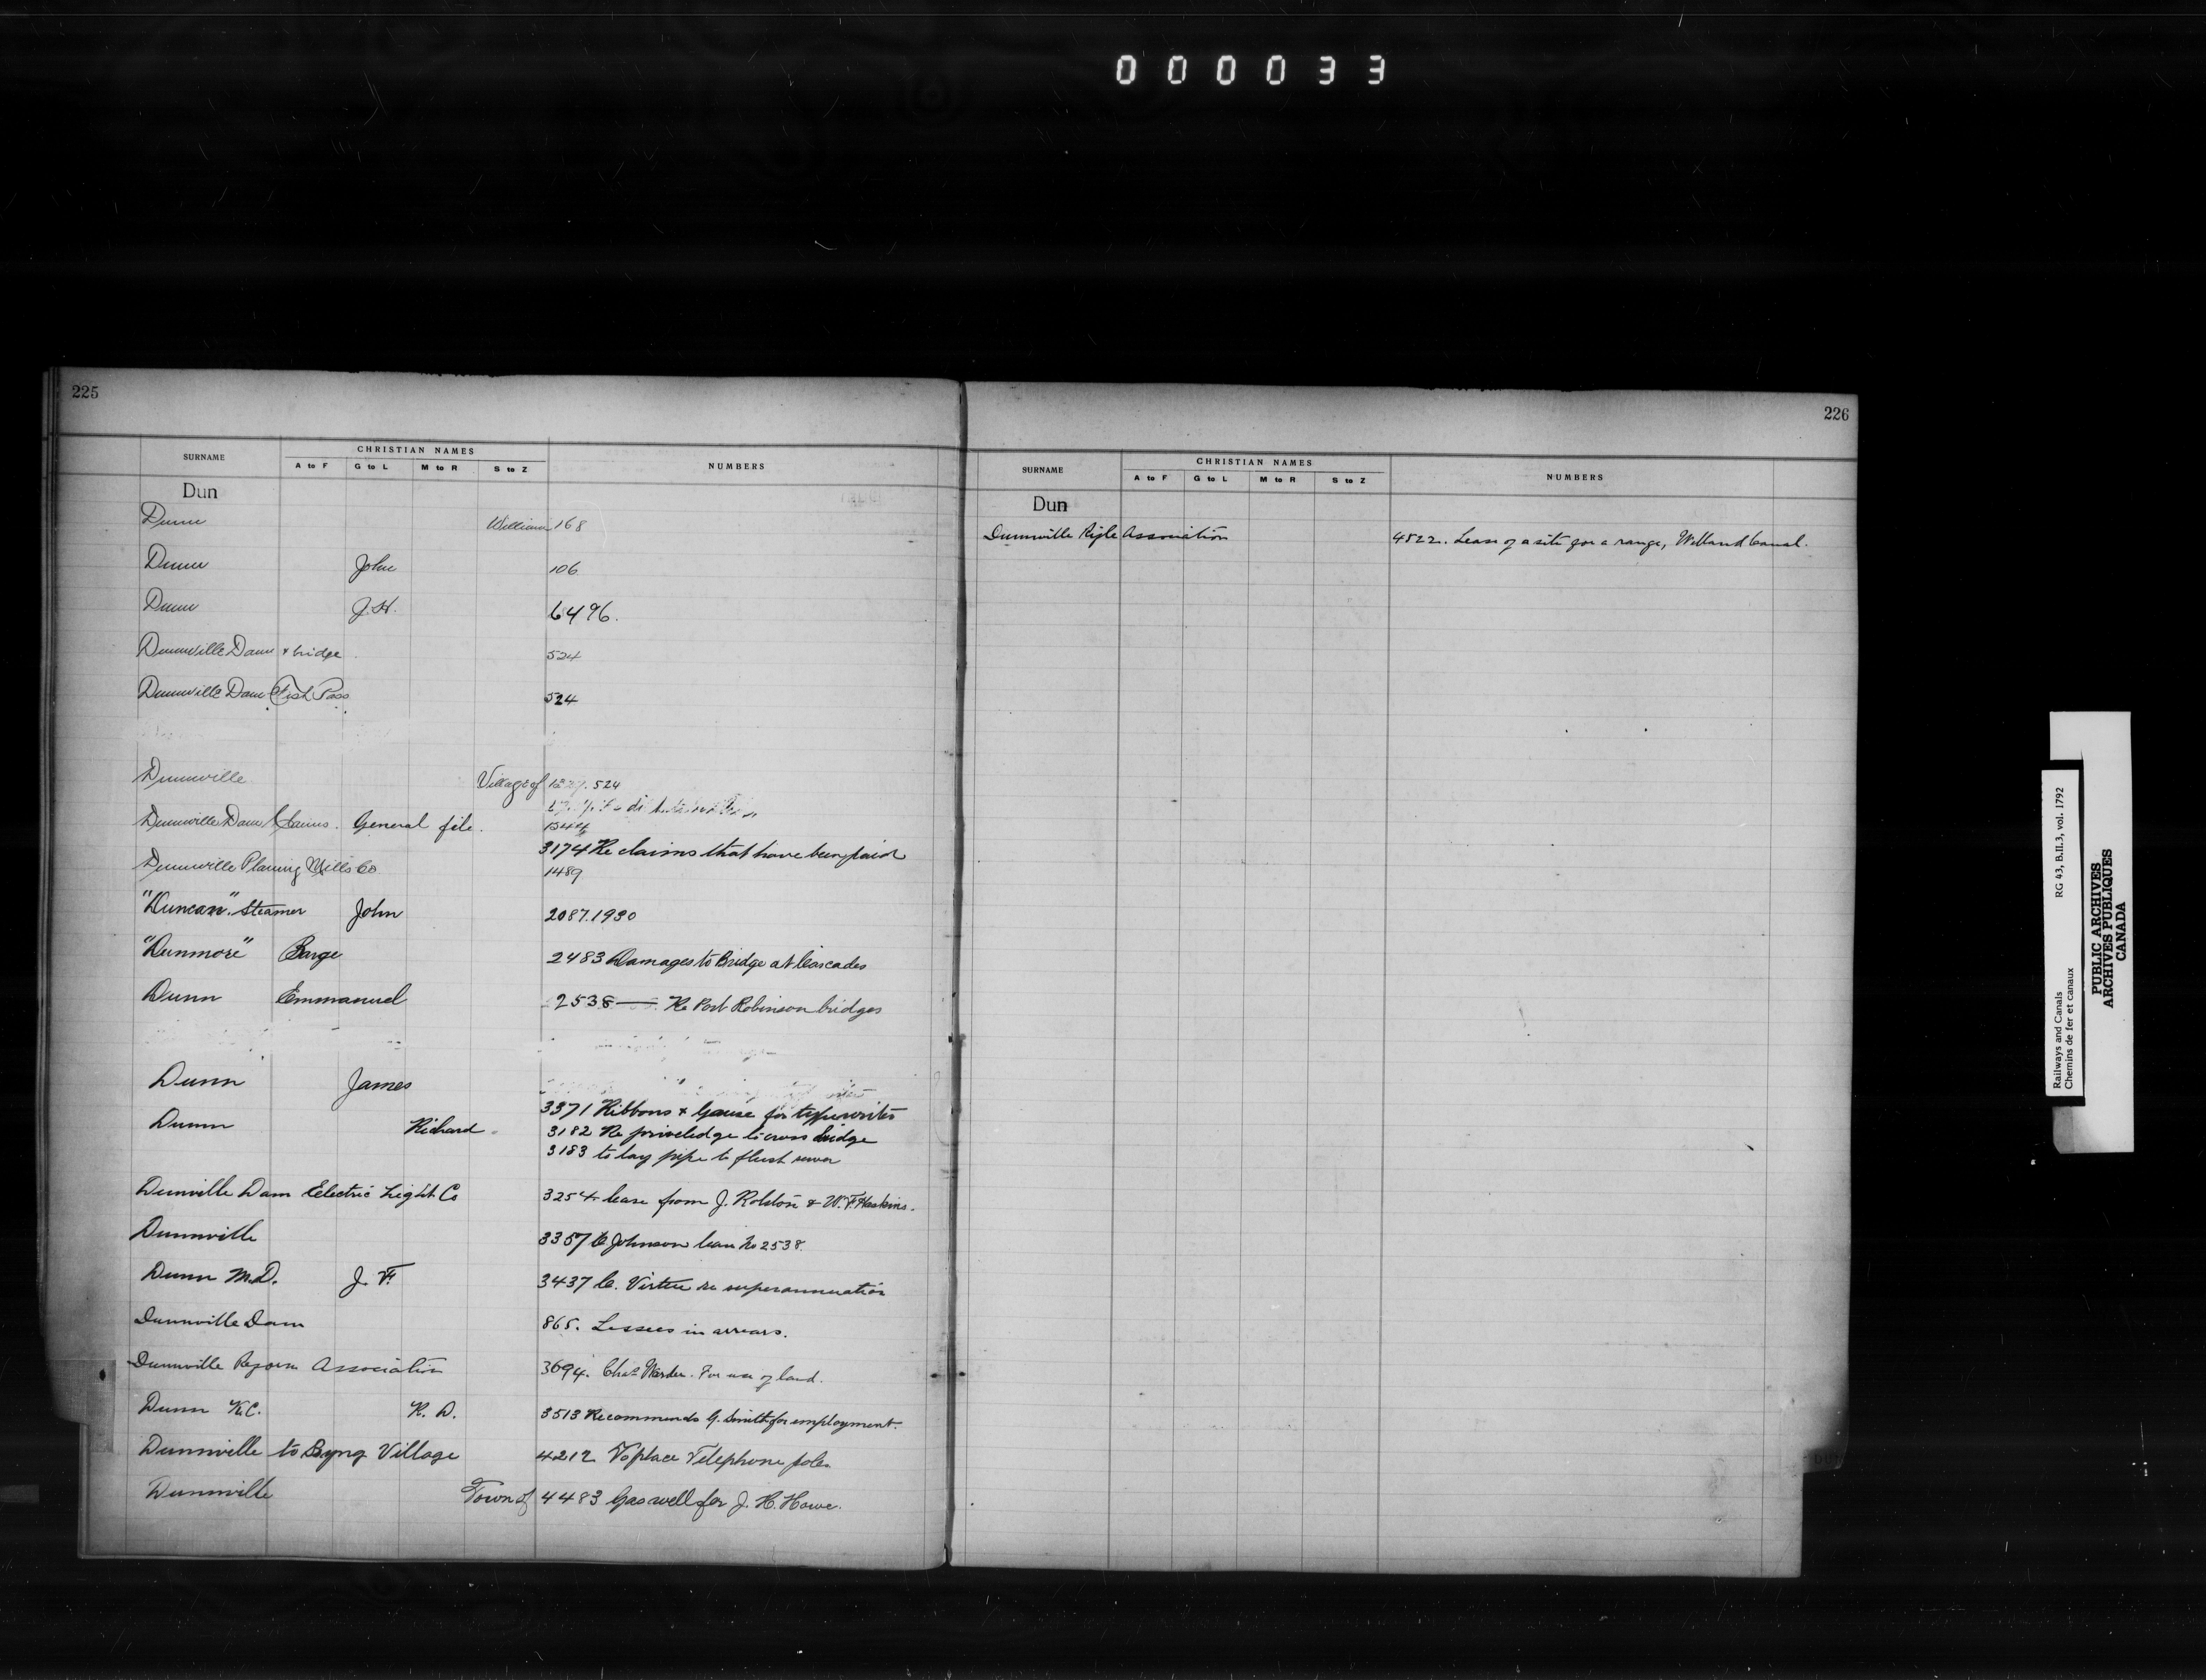 000033
225
SURNAME CHRISTIAN NAMES NUMBERS
A to F G to L M to R S to Z
Dun
Dunn William 168
Dunn John 106
Dunn J.H. 6496.
Dunnville Dam & bridge 524
Dunnville Dam Fish Pass 524
Dunnville Village of 524
Dunnville Dam Claims. General file.
3174 Re claims that have been paid
Dunnville Planing Mills Co 1489
"Duncan" Steamer John 2087.1930
"Dunmore" Barge 2483 Damages to Bridge at Cascades
Dunn Emmanuel 2538 — Re Port Robinson bridges
Dunn James
3371 Ribbons & Gause for typewriter
Dunn Richard 3182 Re priveledge to cross bridge
3183 to lay pipe to flush sewer
Dunville Dam Electric Light Co 3254 lease from J. Rolston & W.F. Haskins.
Dunnville 3357 C Johnson lease No 2538
Dunn M.D. J. F. 3437 C. Virtue re superannuation
Dunnville Dam 865. Lessees in arrears.
Dunnville Reform Association 3694. Chas Warder. For use of land.
Dunn K.C. R. D. 3513 Recommends G. Smith for employment.
Dunnville to Byng Village 4212 To place Telephone poles
Dunnville Town of 4483 Gas well for J. H. Howe.
226
SURNAME CHRISTIAN NAMES NUMBERS
A to F G to L M to R S to Z
Dun
Dunnville Rifle Association 4522. Lease of a site for a range, Welland Canal.
Railways and Canals RG 43, B.II.3, vol. 1792
Chemins de fer et canaux
PUBLIC ARCHIVES
ARCHIVES PUBLIQUES
CANADA